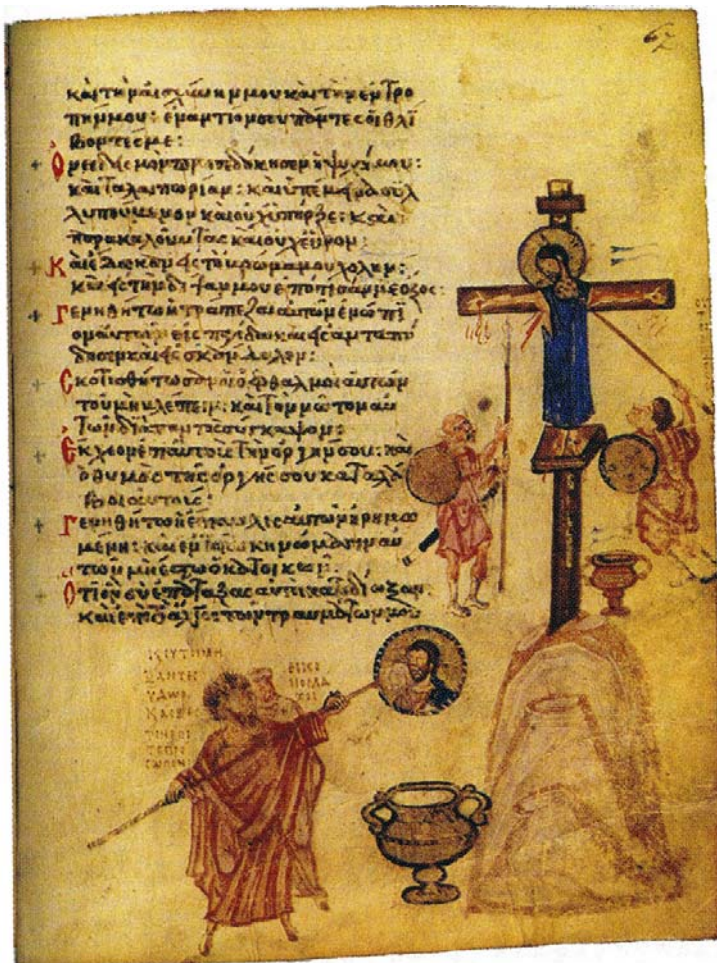 καὶ τὴν αἰσχύνην μου καὶ τὴν ἐντρο
πήν μου: ἐναντίον σου πάντες οἱ θλί
βοντές με:
Ὀνειδισμὸν προσεδόκησεν ἡ ψυχή μου:
καὶ ταλαιπωρίαν: καὶ ὑπέμεινα συλ
λυπούμενον καὶ οὐχ ὑπῆρξε: καὶ
παρακαλοῦντας καὶ οὐχ εὗρον:
Καὶ ἔδωκαν εἰς τὸ βρῶμά μου χολήν:
καὶ εἰς τὴν δίψαν μου ἐπότισάν με ὄξος:
Γενηθήτω ἡ τράπεζα αὐτῶν ἐνώπι
ον αὐτῶν εἰς παγίδα καὶ εἰς ἀνταπό
δοσιν καὶ εἰς σκάνδαλον:
Σκοτισθήτωσαν οἱ ὀφθαλμοὶ αὐτῶν
τοῦ μὴ βλέπειν: καὶ τὸν νῶτον αὐ
τῶν διὰ παντὸς σύγκαμψον:
Ἔκχεον ἐπ αὐτοὺς τὴν ὀργήν σου: καὶ
ὁ θυμὸς τῆς ὀργῆς σου καταλά
βοι αὐτούς:
Γενηθήτω ἡ ἔπαυλις αὐτῶν ἠρημω
μένη: καὶ ἐν τοῖς σκηνώμασιν αὐ
τῶν μὴ ἔστω ὁ κατοικῶν:
Ὅτι ὃν σὺ ἐπάταξας αὐτοὶ κατεδίωξαν
καὶ ἐπὶ τὸ ἄλγος τῶν τραυμάτων μου